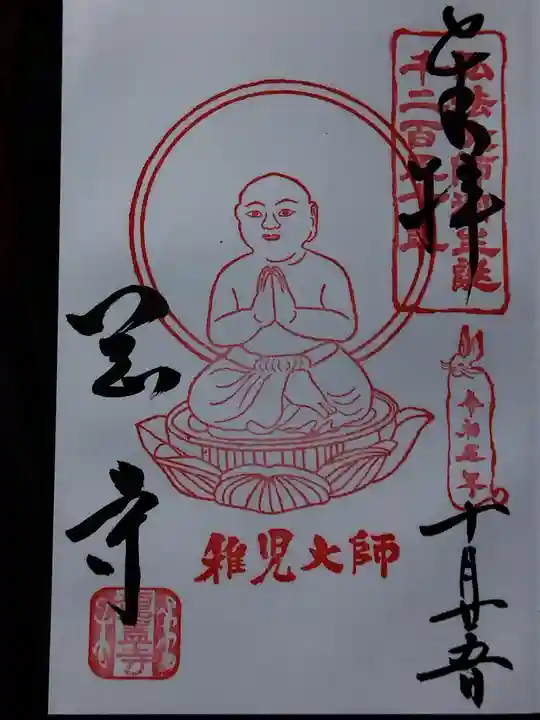 奉拝
弘法大師御生誕
千二百五十年
令和五年
十月廿五日
稚児大師
岡寺
龍蓋寺